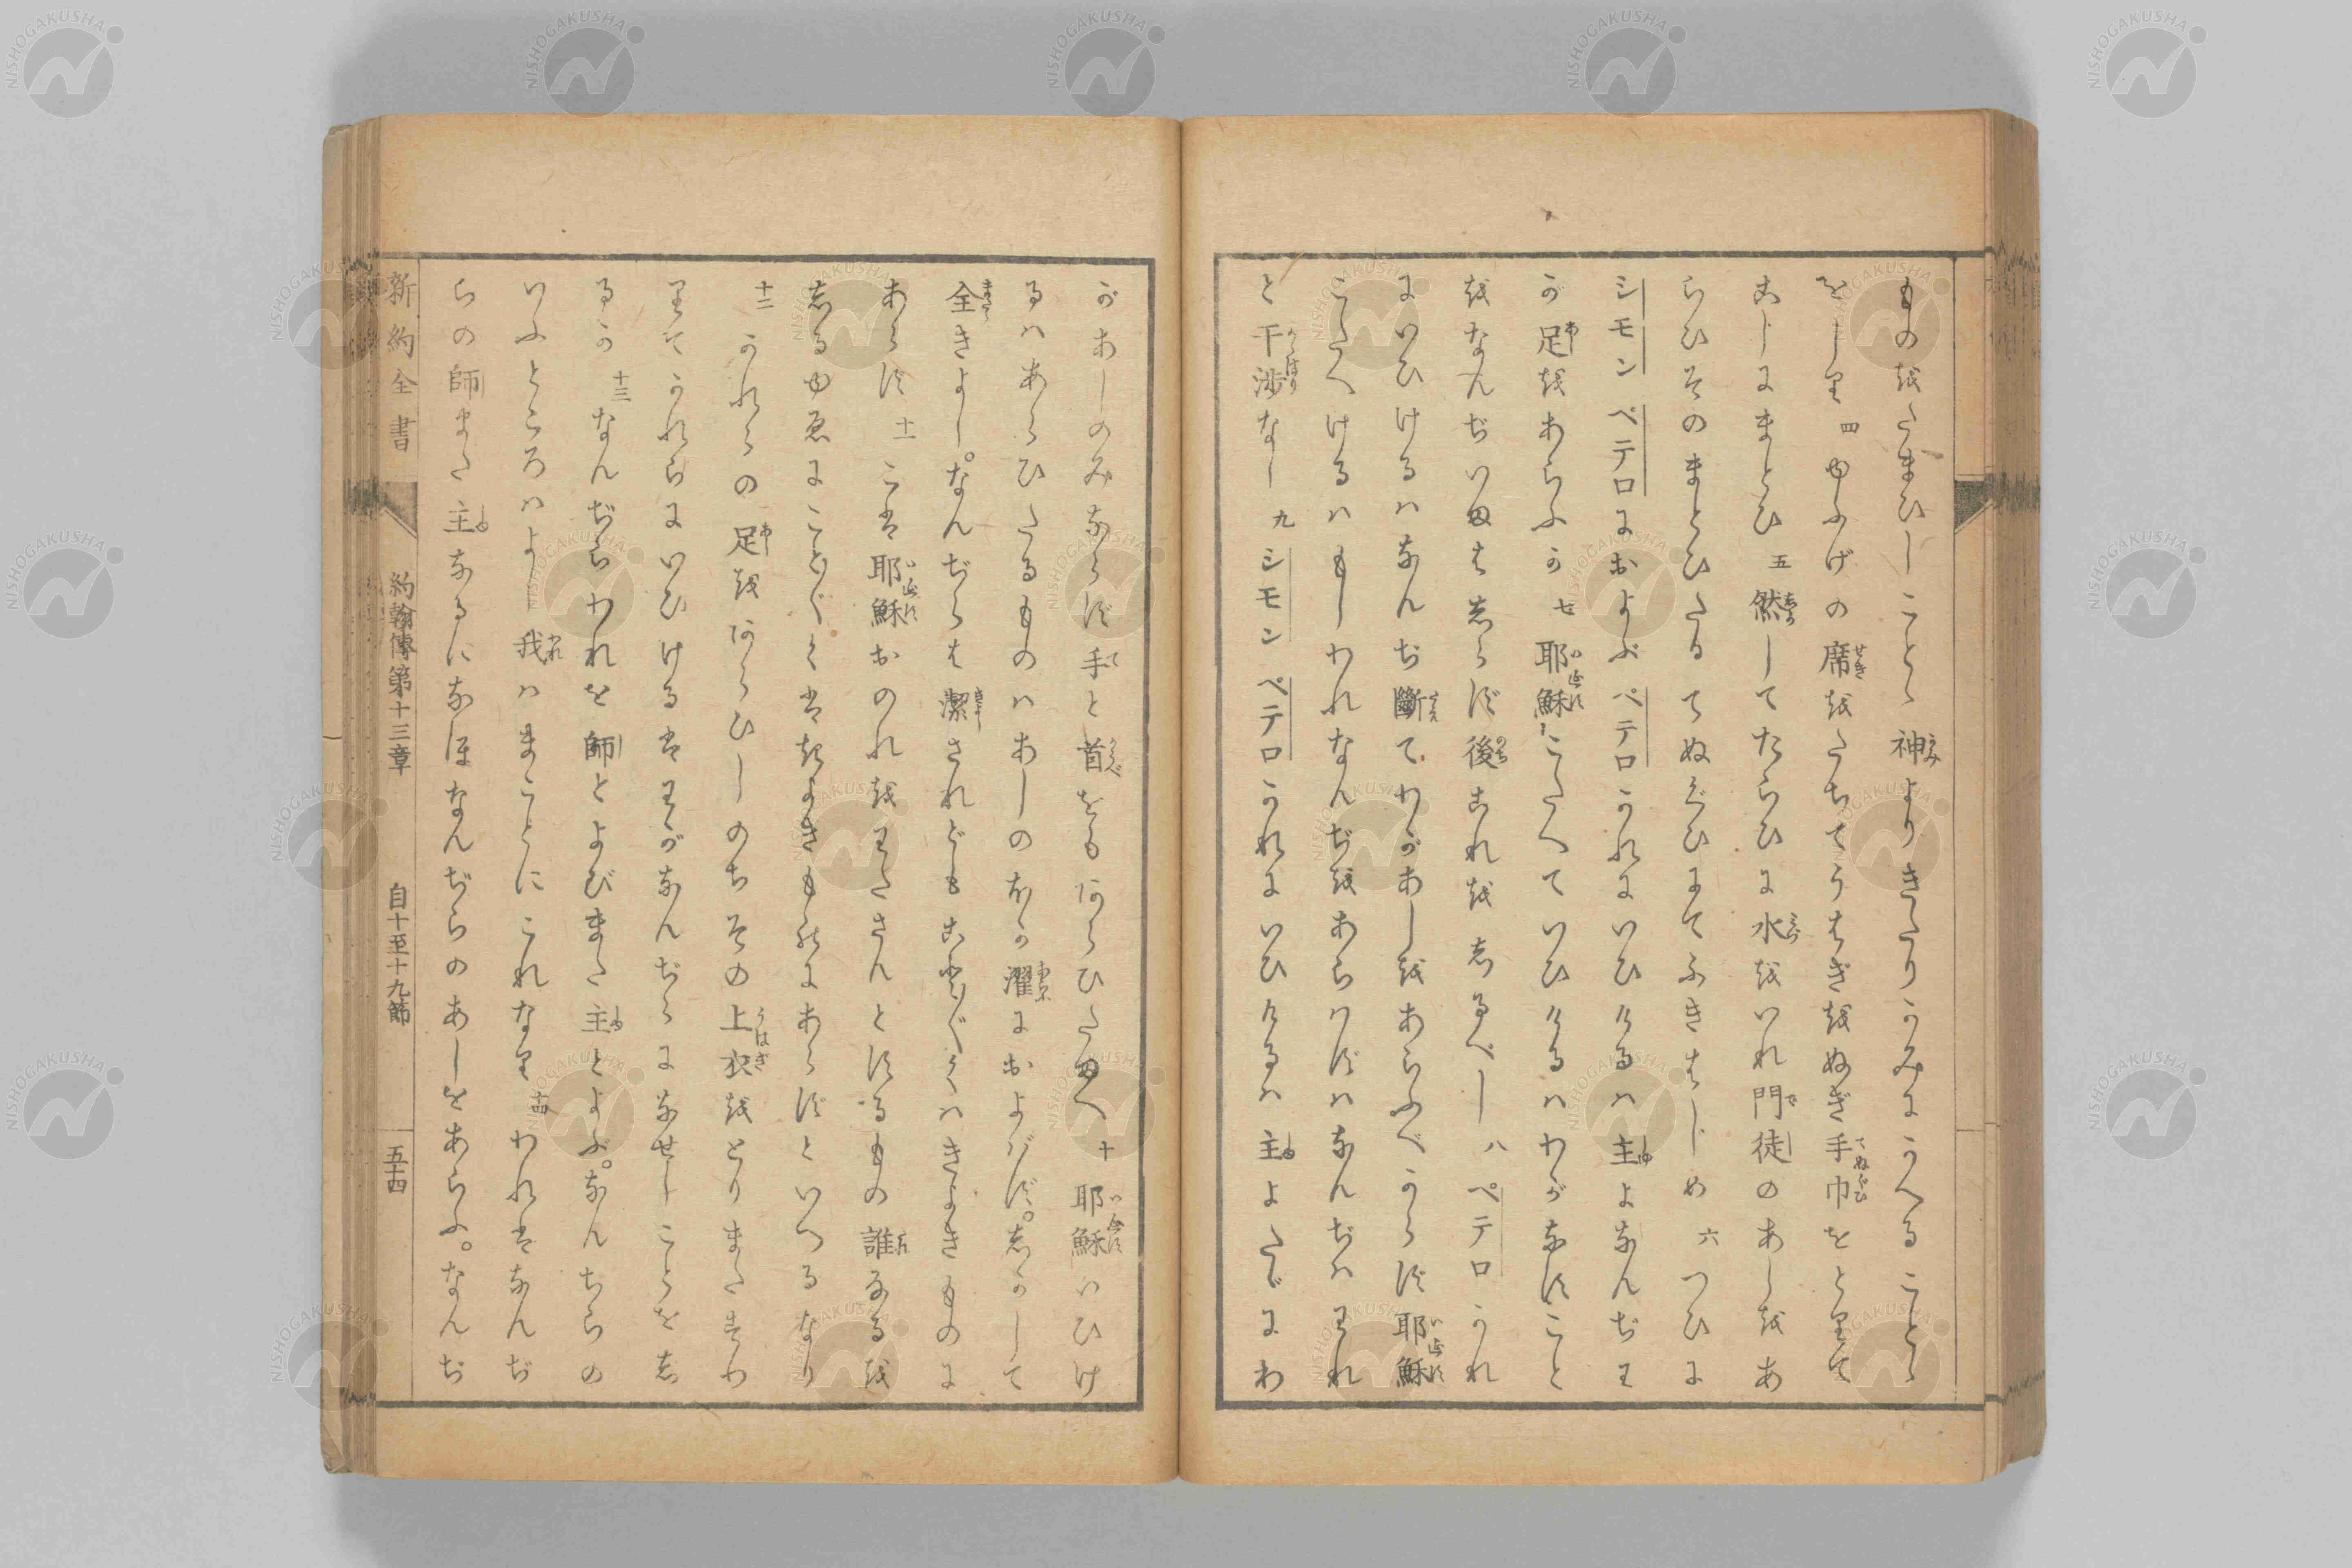 ものをたまひしことゝ神よりきたりかみにかへることゝ
をしり 四 ゆふげの席をたちてうはぎをぬぎ手巾をとりて
こしにまとひ 五 然してたらひに水をいれ門徒のあしをあ
らひそのまとひたるてぬぐひにてふきはじめ 六 つひに
シモンペテロにおよぶペテロかれにいひけるハ主よなんぢわ
が足をあらふか 七 耶穌こたへていひけるハわがなすこと
をなんぢいまはしらず後これをしるべし 八 ペテロかれ
にいひけるハなんぢ斷てわがあしをあらふべからず耶穌
こたへけるハもしわれなんぢをあらハずハなんぢハわれ
と干渉なし 九 シモンペテロかれにいひけるハ主よたゞにわ
があしのみならず手と首をもあらひたまへ 十 耶穌いひけ
るハあらひたるものハあしのほか濯におよばず。しかして
全きよし。なんぢらは潔されどもことごとくハきよきものに
あらず 十一 こは耶穌おのれをわたさんとするもの誰なるを
しるゆゑにことごとくはきよきものにあらずといへるなり
十二 かれらの足をあらひしのちその上衣をとりまたすわ
りてかれらにいひけるはわがなんぢらになせしことをし
るか 十三 なんぢらわれを師とよびまた主とよぶ。なんぢらの
いふところハよし我ハまことにこれなり 十四 われはなんぢ
らの師また主なるになほなんぢらのあしをあらふ。なんぢ
新約全書 約翰傳第十三章 自十至十九節 五十四
NISHOGAKUSHA